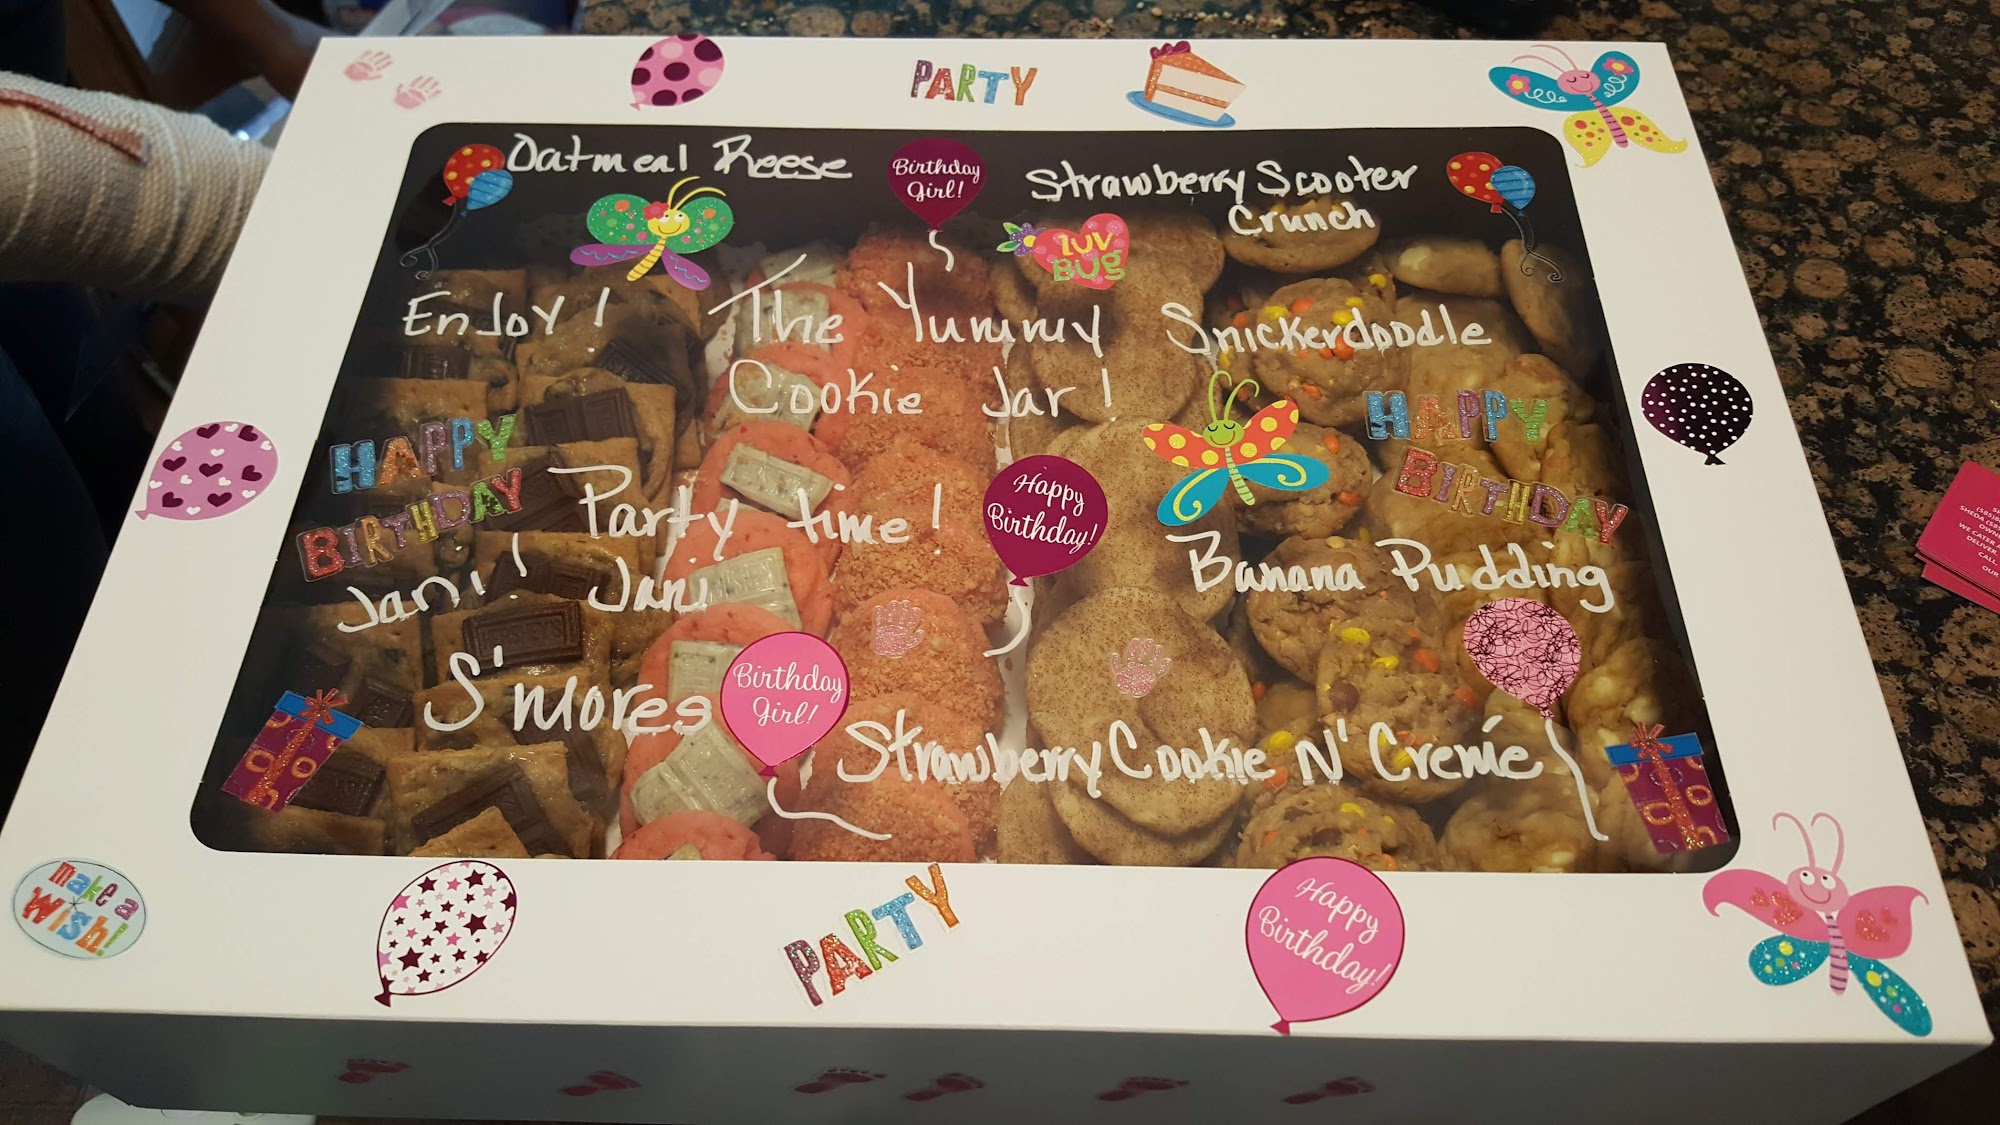 PARTY
Oatmeal Reese
Birthday
Girl!
Strawberry Scooter
Crunch
LUV
BUG
Enjoy!
The Yummy
Cookie Jar!
Snickerdoodle
HAPPY
BIRTHDAY
Jani!
Party time!
Jani
Happy
Birthday!
HAPPY
BIRTHDAY
Banana Pudding
S'mores
HERSHEY'S
Birthday
Girl!
Strawberry Cookie N' Creme
make a
wish!
PARTY
Happy
Birthday!
SHEDA (585
WE CATER
DELIVER
CALL
OUR